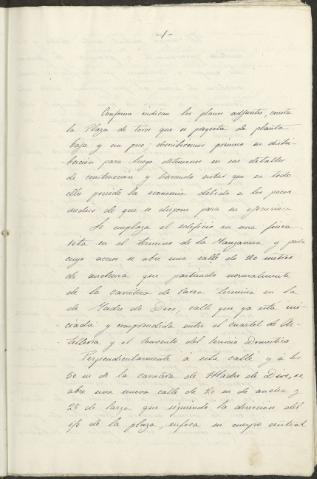 -1-
Conforme indican los planos adjuntos, consta
la Plaza de toros que se proyecta de planta
baja y un piso, describiremos primero su distri-
bución para luego detenernos en sus detalles
de construcción y haciendo notar que en todo
ello preside la economía debido a los pocos
medios de que se dispone para su ejecución.
Se emplaza el edificio en una finca
sita en el término de la Manzanera y para
cuyo acceso se abre una calle de 20 metros
de anchura que partiendo normalmente
de la carretera de termina en la
de Madre de Dios, calle que ya está ini-
ciada y comprendida entre el cuartel de Ar-
tillería y el convento del servicio Doméstico
Perpendicularmente á esta calle y á los
60 m de la carretera de Madre de Dios, se
abre una nueva calle de 20 m de ancho y
25 de largo que siguiendo la dirección del
eje de la plaza, enfoca su cuerpo central